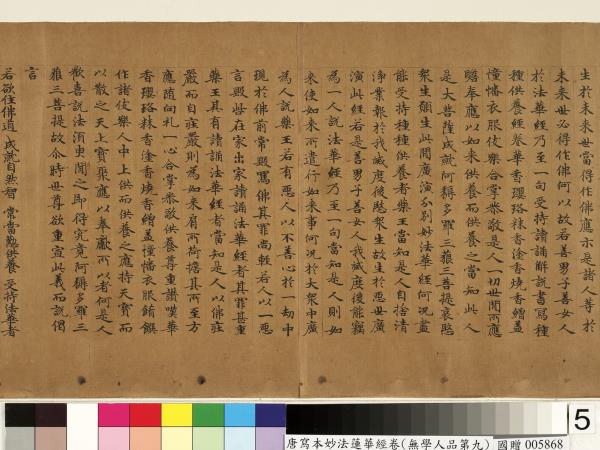 生於未來世當得作佛應示是諸人等於
未來世必得作佛何以故若善男子善女人
於法華經乃至一句受持讀誦解說書寫種
種供養經卷華香瓔珞秣香塗香燒香繒蓋
幢幡衣服伎樂合掌恭敬是人一切世間所應
瞻奉應以如來供養而供養之當知此人
是大菩薩成就阿耨多羅三藐三菩提哀愍
衆生願生此間廣演分別妙法華經何況盡
能受持種種供養者藥王當知是人自捨清
淨業報於我滅度後愍衆生故生於惡世廣
演此經若是善男子善女人我滅度後能竊
為一人說法華經乃至一句當知是人則如
來使如來所遣行如來事何況於大衆中廣
為人說藥王若有惡人以不善心於一劫中
現於佛前常毀罵佛其罪尚輕若人以一惡
言毀呰在家出家讀誦法華經者其罪甚重
藥王其有讀誦法華經者當知是人以佛莊
嚴而自莊嚴則為如來肩所荷擔其所至方
應隨向礼一心合掌恭敬供養尊重讚嘆華
香瓔珞秣香塗香燒香繒蓋幢幡衣服餚饌
作諸伎樂人中上供而供養之應持天寶而
以散之天上寶聚應以奉獻所以者何是人
歡喜說法須臾聞之即得究竟阿耨多羅三
藐三菩提故尒時世尊欲重宣此義而說偈
言
若欲住佛道 成就自然智 常當勤供養 受持法華者
5
唐寫本妙法蓮華經卷(無學人品第九) 國贈 005868